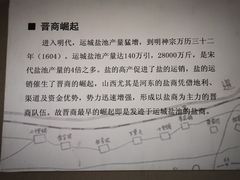 晋商崛起
进入明代，运城盐池产量猛增，到明神宗万历三十二
年（1604），运城盐池产量达140万引，28000万斤，是宋
代盐池产量的4倍之多。盐的高产促进了盐的运销，盐的运
销催生了晋商的崛起，山西尤其是河东的盐商凭借地利、
渠道及资金优势，势力迅速增强，形成以盐商为主力的晋
商队伍。故晋商最早的崛起即是发迹于运城盐池的盐商。